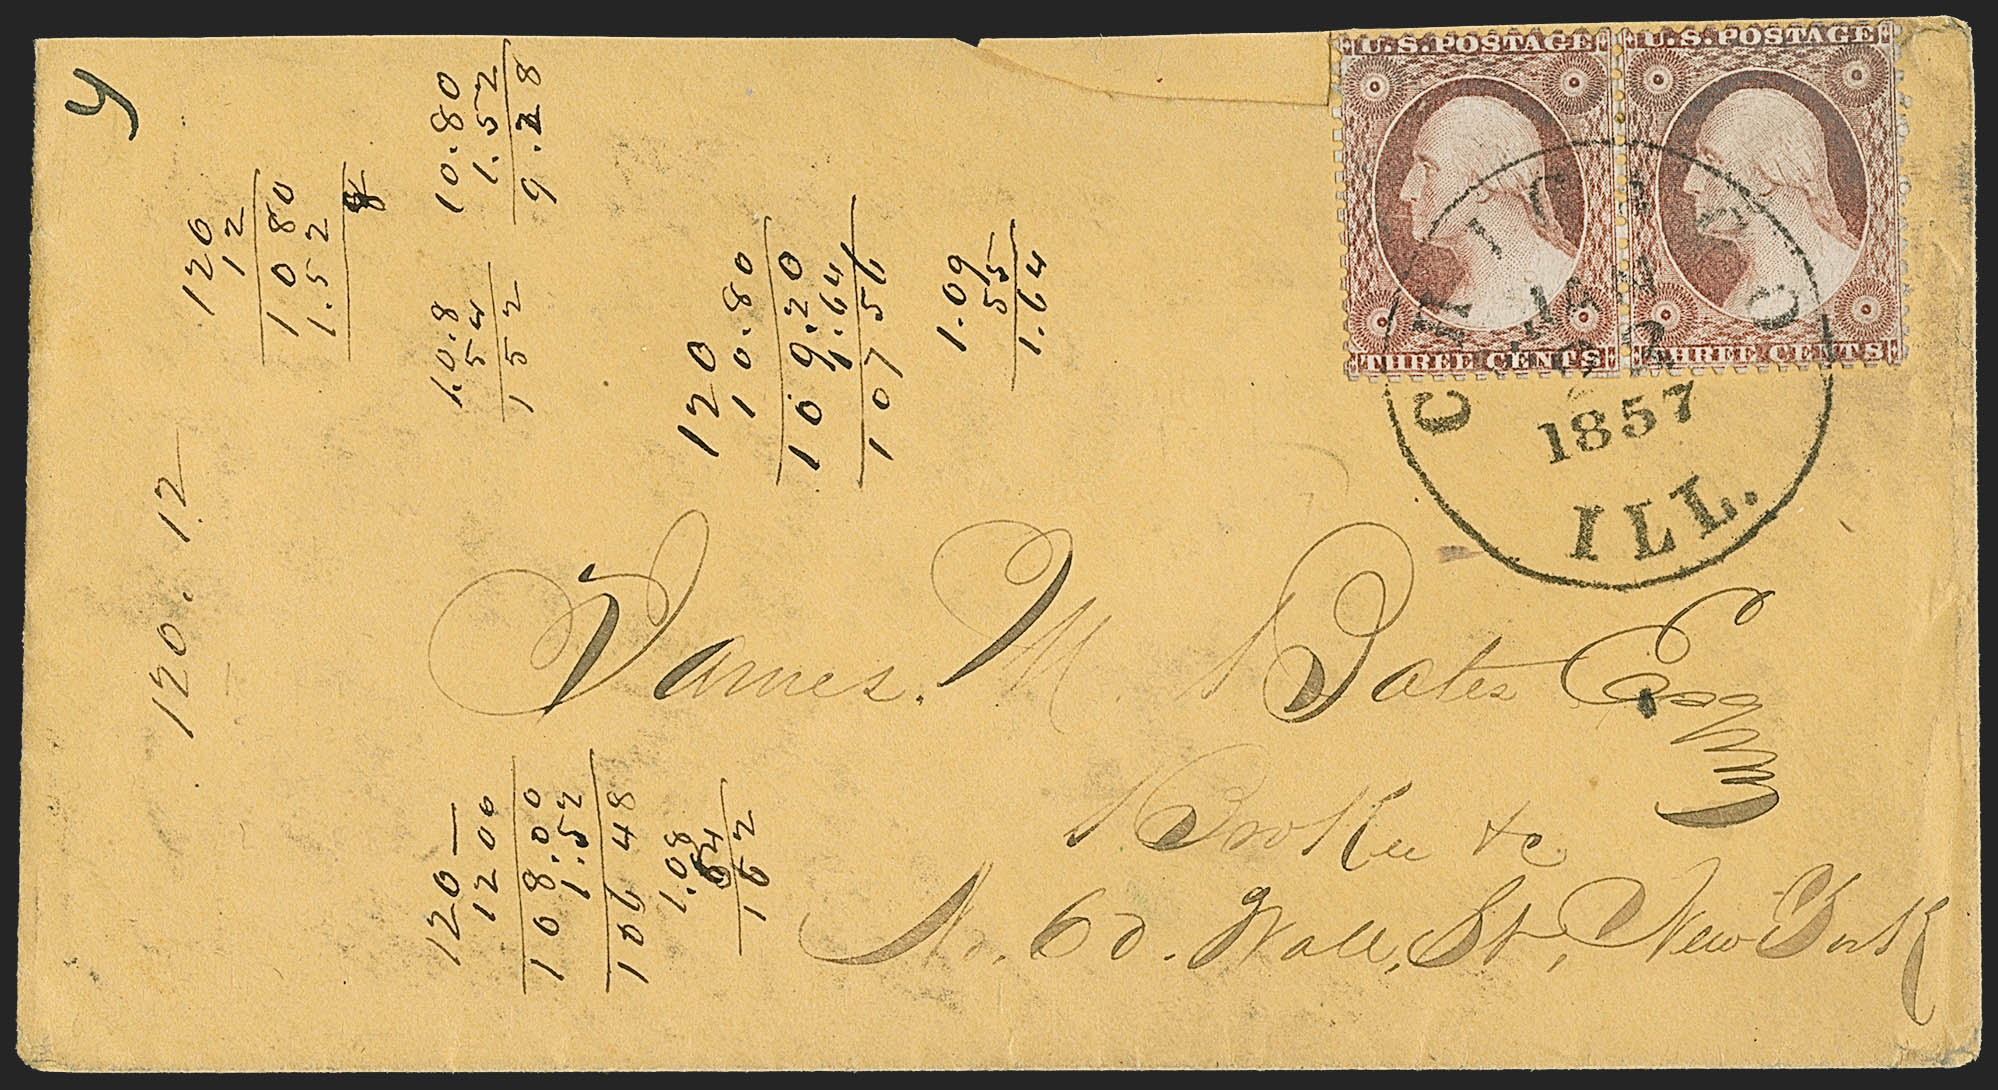 U.S.POSTAGE
THREE CENTS
U.S.POSTAGE
THREE CENTS
CHICAGO
1857
ILL.
James. M. Bates Esq
Broker &c
No. 60. Wall, St, New York
120.12
120
12
1080
1.52
10.80
1.52
9.28
1.0.8
54
152
120
10.80
109.20
1.64
107 56
1.09
55
1.64
120 —
12 00
108.00
1.52
106 48
1.08
54
162